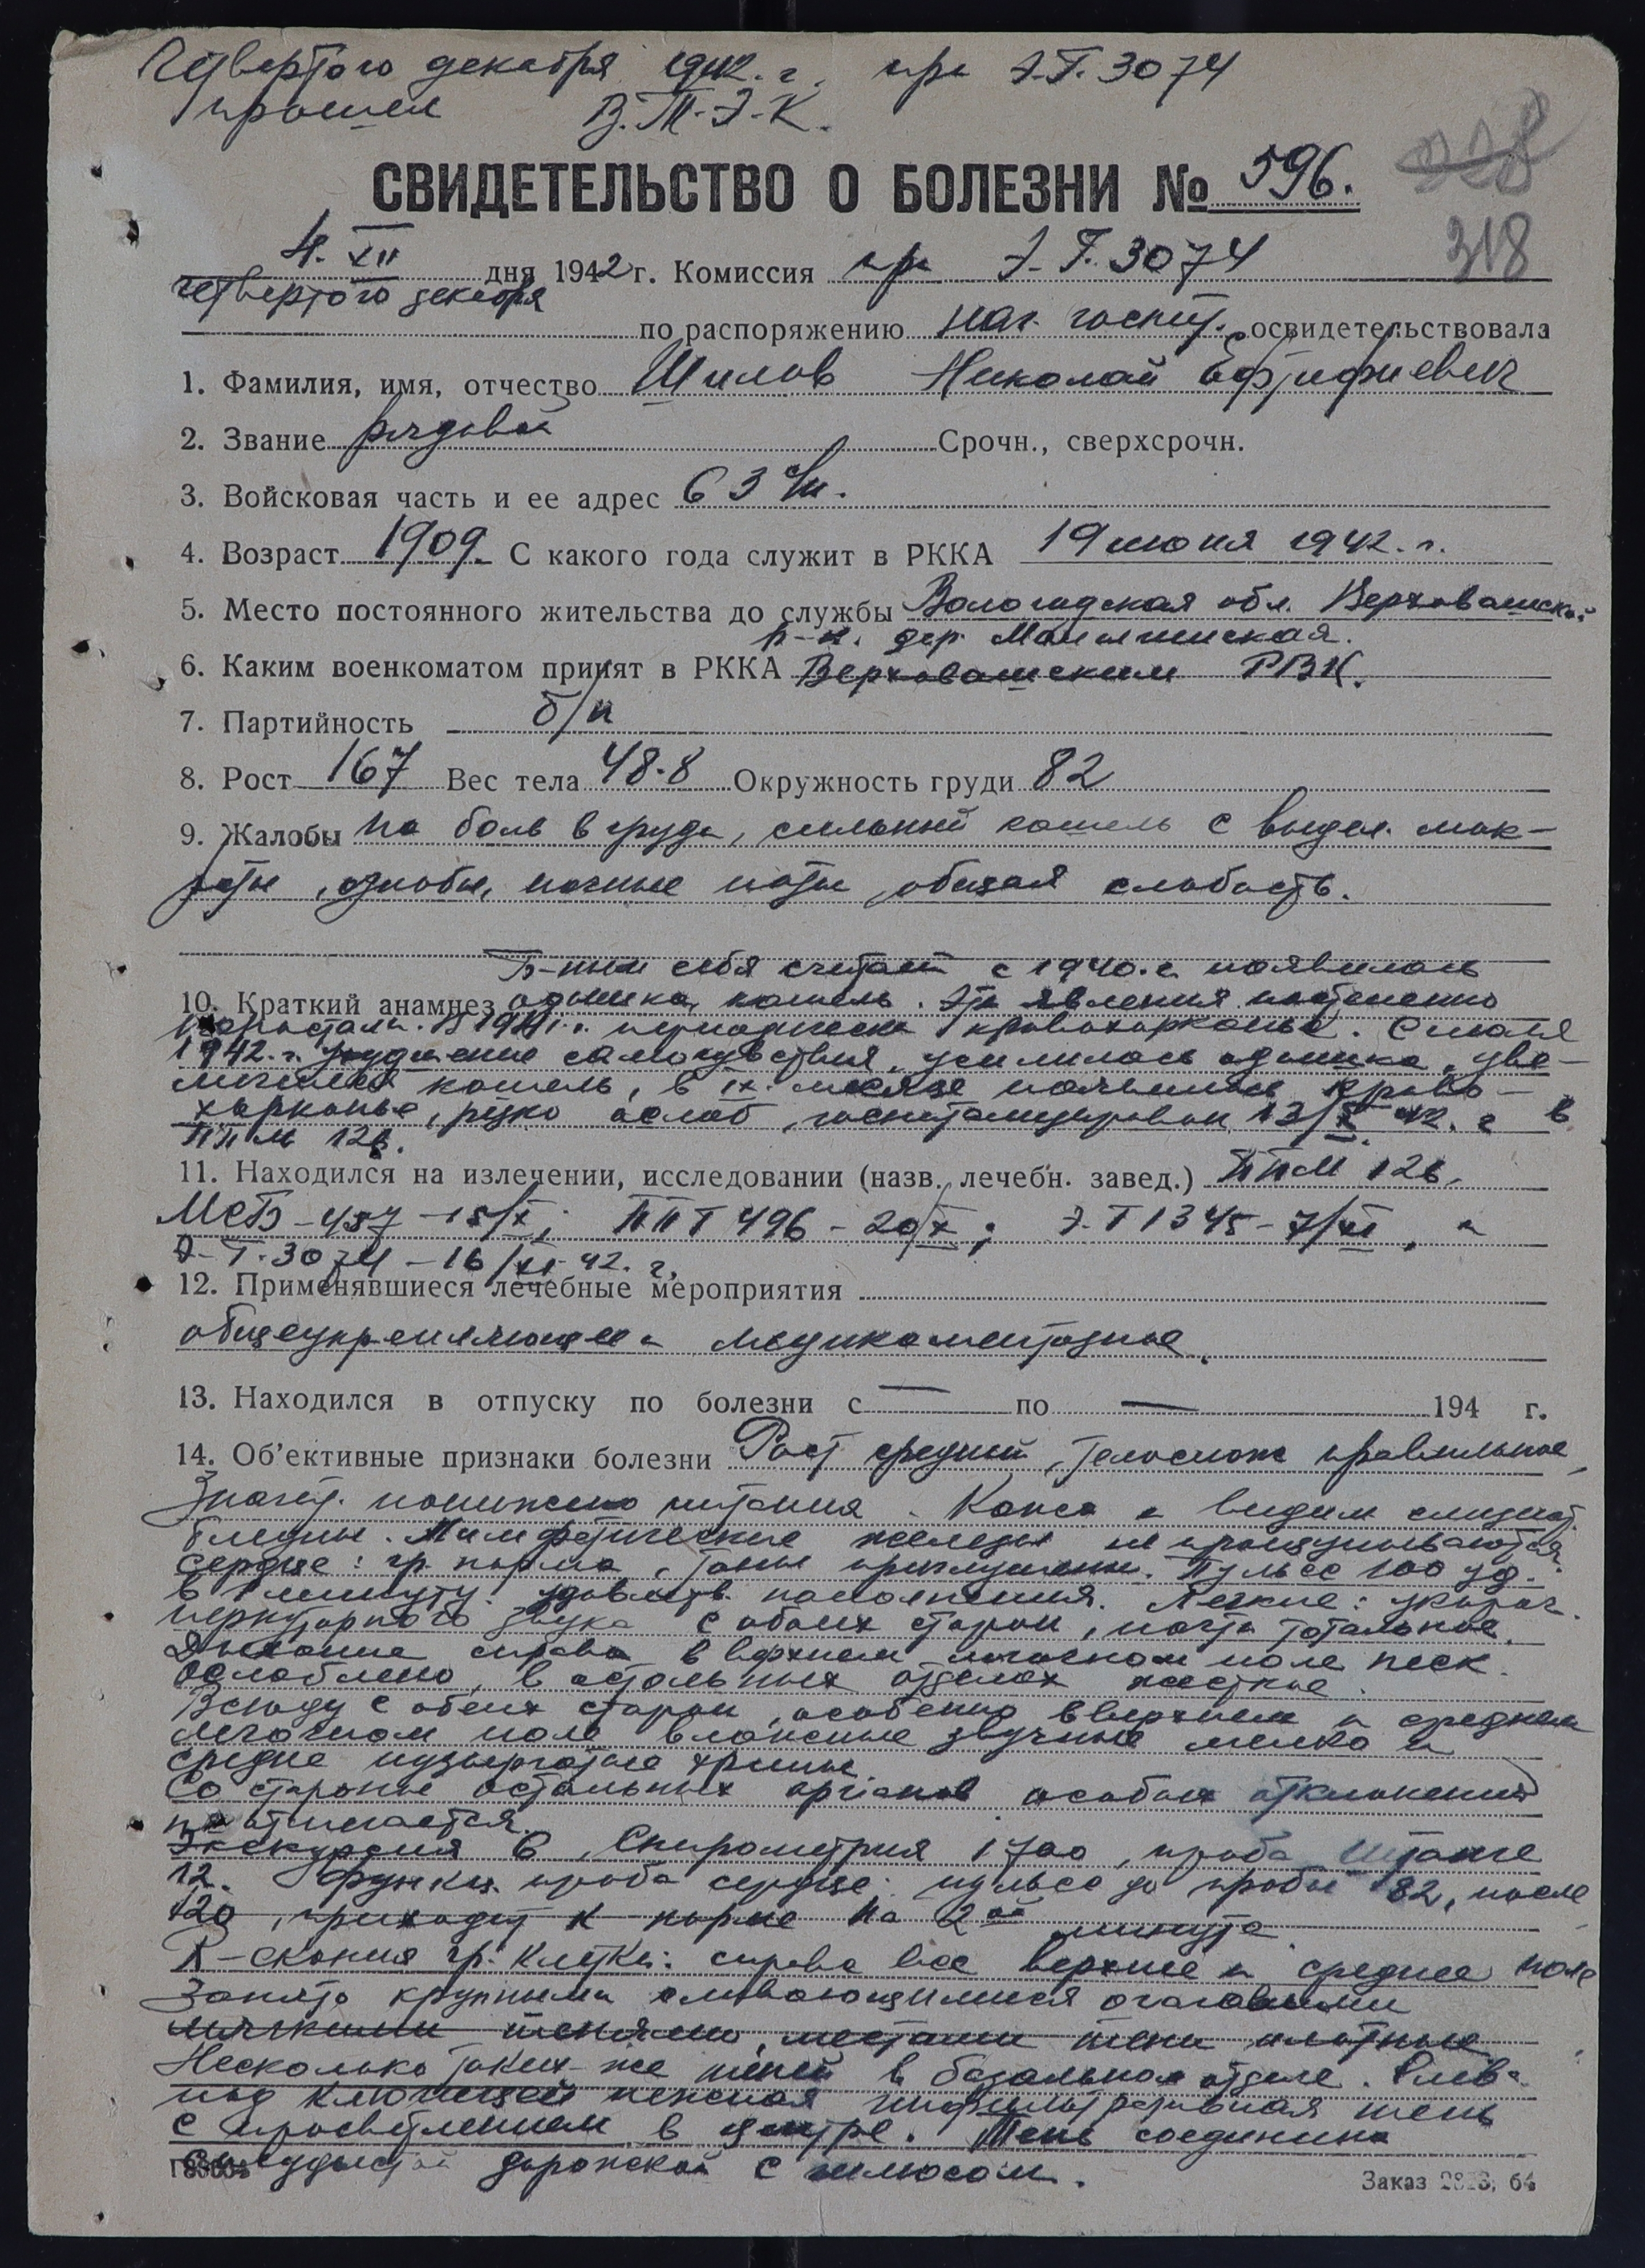 Четвертого декабря 1942. г. при Э.Г. 3074
прошел В.Т-Э-К.
СВИДЕТЕЛЬСТВО О БОЛЕЗНИ № 596.
318
4. XII дня 1942 г. Комиссия при Э.Г. 3074
четвертого декабря
по распоряжению нач. госпит. освидетельствовала
1. Фамилия, имя, отчество Шилов Николай
2. Звание рядовой Срочн., сверхсрочн.
3. Войсковая часть и ее адрес 63
4. Возраст 1909. С какого года служит в РККА 19 июня 1942. г.
5. Место постоянного жительства до службы Вологодская обл. Верховажск.
р-н. дер.
6. Каким военкоматом принят в РККА Верховажским РВК.
7. Партийность б/п
8. Рост 167 Вес тела 48.8 Окружность груди 82
9. Жалобы на боль в груди, сильный кашель с выдел. мок-
роты, ознобы, ночные поты, общая слабость.
Б-ным себя считает с 1940. г. появилась
10. Краткий анамнез одышка, кашель. Эти явления постепенно
нарастали. В 1941. г. периодически кровохарканье. С июля
1942. г. ухудшение самочувствия, усилилась одышка, уве-
личился кашель, в IX. месяце появилось крово-
харканье, резко ослаб, госпитализирован 13/X 42. г в
ППМ 126.
11. Находился на излечении, исследовании (назв. лечебн. завед.) ППМ 126,
МСБ-457-15/X; ППГ 496-20/X; Э.Г 1345-7/XI, и
Э-Г. 3074-16/XI-42. г.
12. Применявшиеся лечебные мероприятия
общеукрепляющее и медикаментозное.
13. Находился в отпуску по болезни с — по — 194 г.
14. Об'ективные признаки болезни Рост средний, телослож правильное,
Значит. понижено питания. Кожа и видим слизист.
бледны. Лимфатические железы не прощупываются
Сердце: гр. норма, тоны приглушены. Пульс 100 уд.
в 1 минуту. удовлетв. наполнения. Легкие: укороч.
перкуторного звука с обоих сторон, почти тотальное.
Дыхание справа в верхнем легочном поле неск.
ослаблено, в остальных отделах жесткое.
Всюду с обеих сторон, особенно в верхнем и среднем
легочном поле влажные звучные мелко и
средне пузырчатые хрипы.
Со стороны остальных органов особых отклонений
не отмечается.
Экскурсия 6, Спирометрия 1700, проба Штанге
12. Функц. проба сердца: пульс до пробы 82, после
120, приходит к норме на 2ой минуте.
R-скопия гр. клетки: справа все верхнее и среднее поле
Занято крупными сливающимися очаговыми
мягкими тенями, местами тени плотные
Несколько таких-же теней в базальном отделе. Слева
под ключицей нежная инфильтративная тень
с просветлением в центре. Тень соединена
дорожкой с хилюсом.
Заказ 64